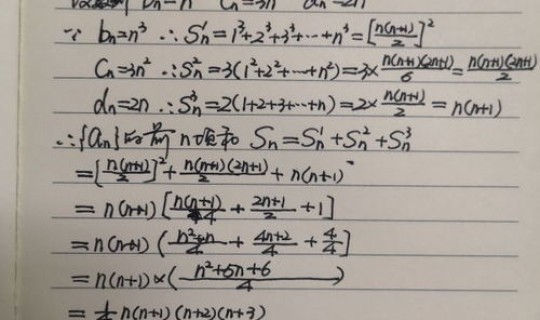 bₙ=n³ Cₙ=3n² dₙ=2n
∵ bₙ=n³ ∴Sₙ¹=1³+2³+3³+⋯+n³=[n(n+1)/2]²
Cₙ=3n² ∴Sₙ²=3(1²+2²+⋯+n²)=3×n(n+1)(2n+1)/6=n(n+1)(2n+1)/2
dₙ=2n ∴Sₙ³=2(1+2+3+⋯+n)=2×n(n+1)/2=n(n+1)
∴{aₙ}的前n项和 Sₙ=Sₙ¹+Sₙ²+Sₙ³
=[n(n+1)/2]²+n(n+1)(2n+1)/2+n(n+1)
=n(n+1)[n(n+1)/4+2n+1/2+1]
=n(n+1)(n²+n/4+4n+2/4+4/4]
=n(n+1)×(n²+5n+6/4)
=1/4n(n+1)(n+2)(n+3)